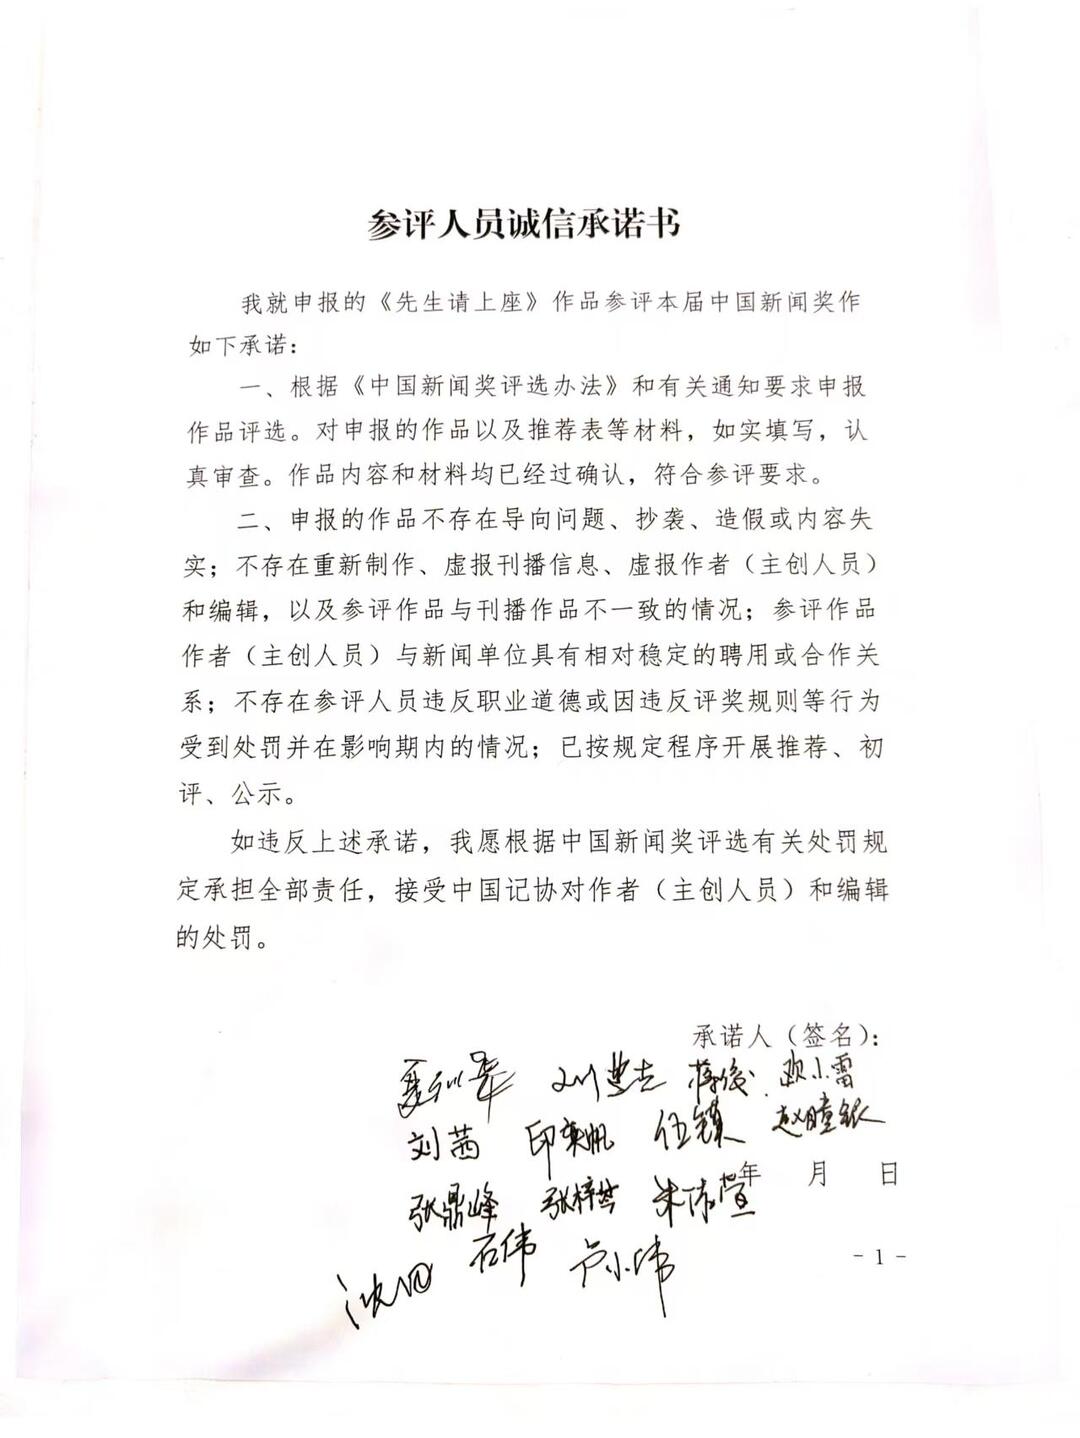 参评人员诚信承诺书
我就申报的《先生请上座》作品参评本届中国新闻奖作
如下承诺：
一、根据《中国新闻奖评选办法》和有关通知要求申报
作品评选。对申报的作品以及推荐表等材料，如实填写，认
真审查。作品内容和材料均已经过确认，符合参评要求。
二、申报的作品不存在导向问题、抄袭、造假或内容失
实；不存在重新制作、虚报刊播信息、虚报作者（主创人员）
和编辑，以及参评作品与刊播作品不一致的情况；参评作品
作者（主创人员）与新闻单位具有相对稳定的聘用或合作关
系；不存在参评人员违反职业道德或因违反评奖规则等行为
受到处罚并在影响期内的情况；已按规定程序开展推荐、初
评、公示。
如违反上述承诺，我愿根据中国新闻奖评选有关处罚规
定承担全部责任，接受中国记协对作者（主创人员）和编辑
的处罚。
承诺人（签名）：
蒋俊 欧小雷
刘茜 伍镇
年 月 日
张鼎峰
石伟 卢小伟
- 1 -